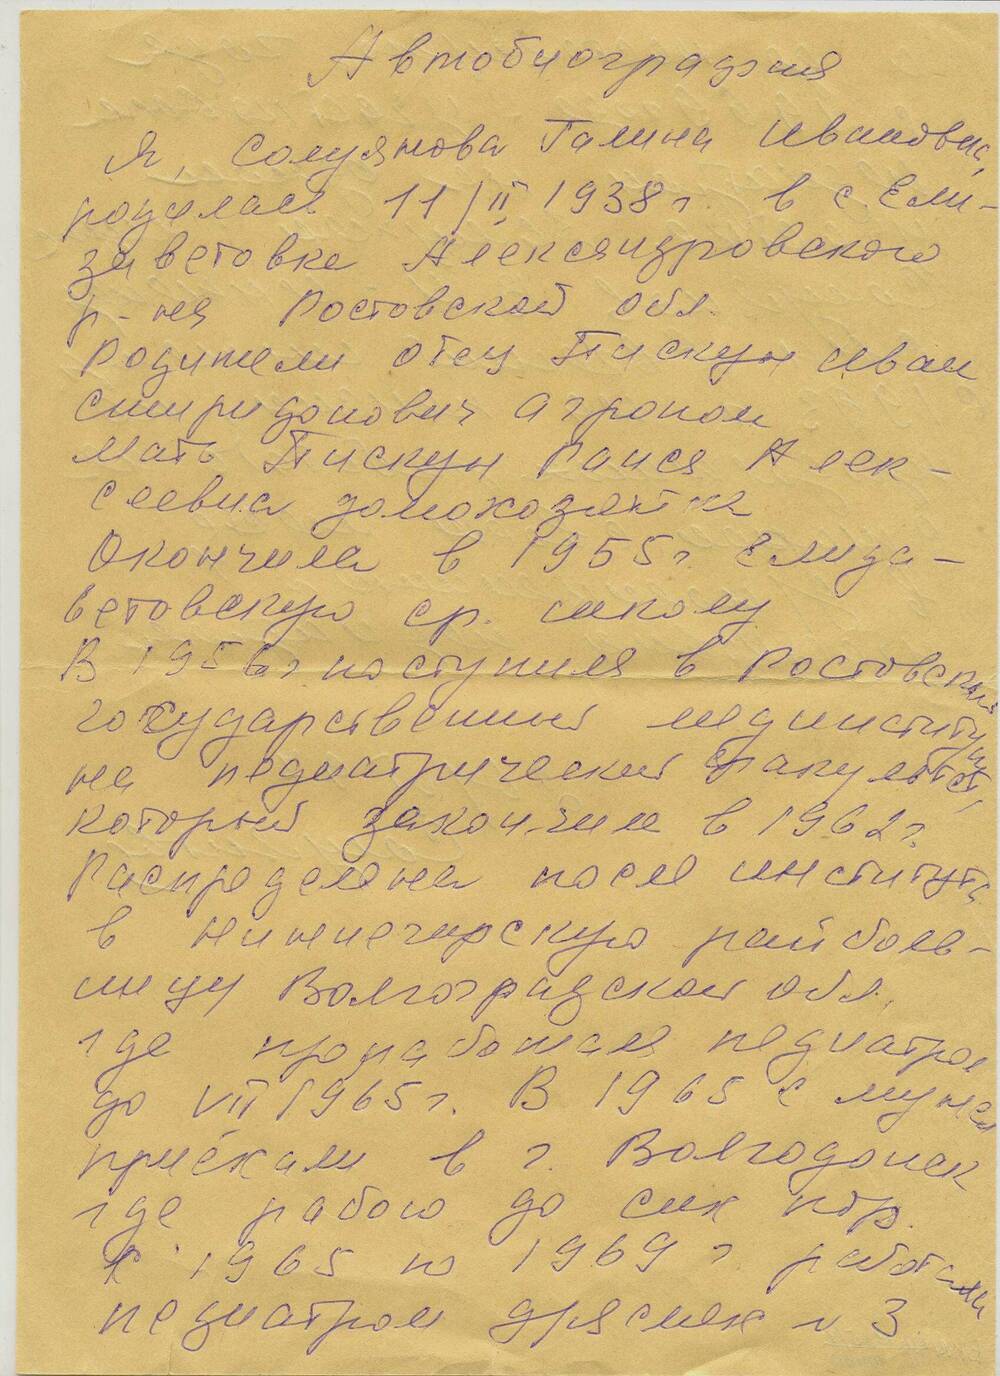 Автобиография
Я, Солуянова Галина Ивановна,
родилась 11/II, 1938 г. в с. Ели-
заветовке Александровского
р-на Ростовской обл.
Родители отец Пискун Иван
Спиридонович агроном
Мать Пискун Раиса Алек-
сеевна домохозяйка
Окончила в 1955 г. Елиза-
ветовскую ср. школу
В 1956 г поступила в Ростовский
государственный мединститут
на педиатрический факультет,
который закончила в 1962 г.
Распределена после института
в Нижнечирскую райболь-
ницу Волгоградской обл.,
где проработала педиатром
до VII 1965 г. В 1965 с мужем
приехали в г. Волгодонск
где работаю до сих пор.
С 1965 по 1969 г. работала
педиатром я 3